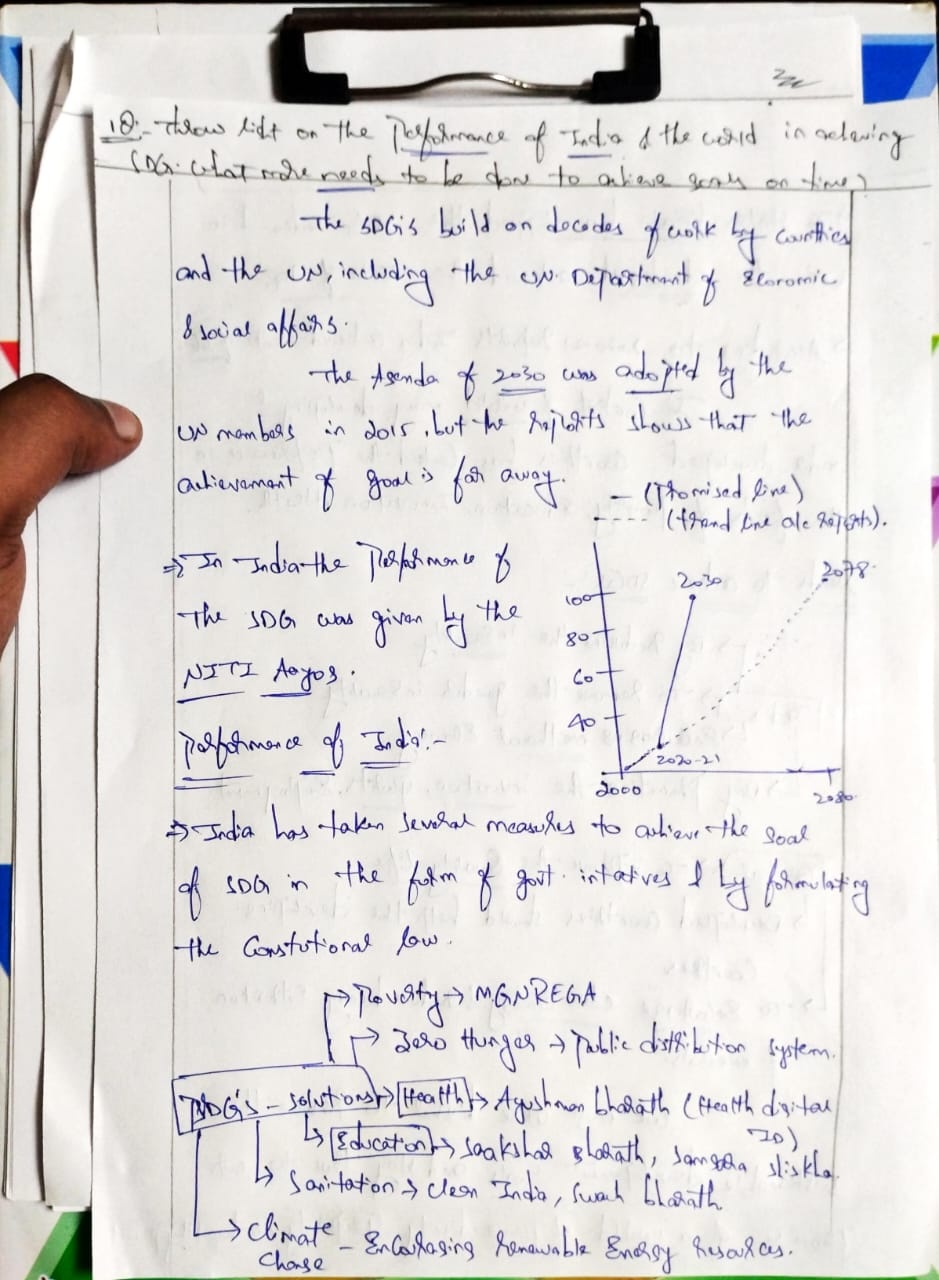 1Q:- Throw light on the Performance of India & the world in achieving
SDG. What more needs to be done to achieve goals on time?
The SDG's build on decades of work by countries
and the UN, including the UN Department of Economic
& social affairs.
The Agenda of 2030 was adopted by the
UN members in 2015, but the reports shows that the
achievement of goal is far away.
— (Promised line)
---- (trend line a/c reports).
⇒ In India the Performance of
the SDG was given by the
NITI Aayog.
100
80
60
40
2030
2078
2020-21
2000
2080
Performance of India:-
⇒ India has taken several measures to achieve the goal
of SDG in the form of govt. intatives & by formulating
the Constutional law.
→ Poverty → MGNREGA
→ Zero Hunger → Public distribution system.
SDG's - solutions → Health → Ayushman bharath (Health digital ID)
↳ Education → Saakshar Bharath, Samgra shiksha
↳ Sanitation → Clean India, Swach bharath
→ Climate Change – Encouraging renewable Energy resources.